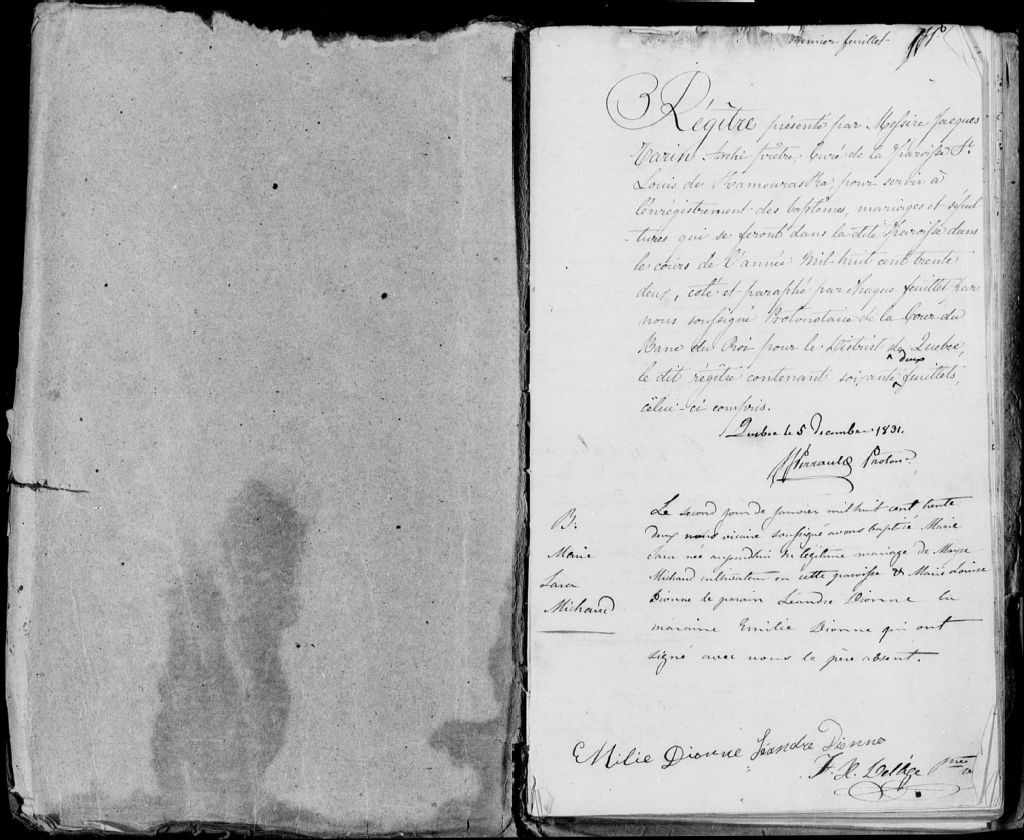 premier feuillet
Régître présenté par Messire Jacques
Varin Archi-prêtre, Curé de la Paroisse St
Louis de Kamouraska, pour servir à
l'enrégistrement des baptêmes, mariages et sépul
-tures qui se feront dans la dite Paroisse dans
le cours de l'année Mil-huit cent trente
deux, coté et paraphé par chaque feuillet par
nous soussigné Protonotaire de la Cour du
Banc du Roi pour le District de Québec,
le dit régître contenant soixante ^deux feuillets,
celui-ci compris.
Quebec le 5 Decembre 1831.
Perrault Proton
B.
Marie
Sara
Michaud
Le second jour de janvier mil huit cent trente
deux nous vicaire soussigné avons baptisé Marie
Sara née aujourdhui du légitime mariage de Moyse
Michaud cultivateur en cette paroisse & Marie Louise
Dionne le parain Léandre Dionne la
maraine Emilie Dionne qui ont
signé avec nous le père absent.
EMilie Dionne Léandre Dionne
F. X. Delâge Ptre